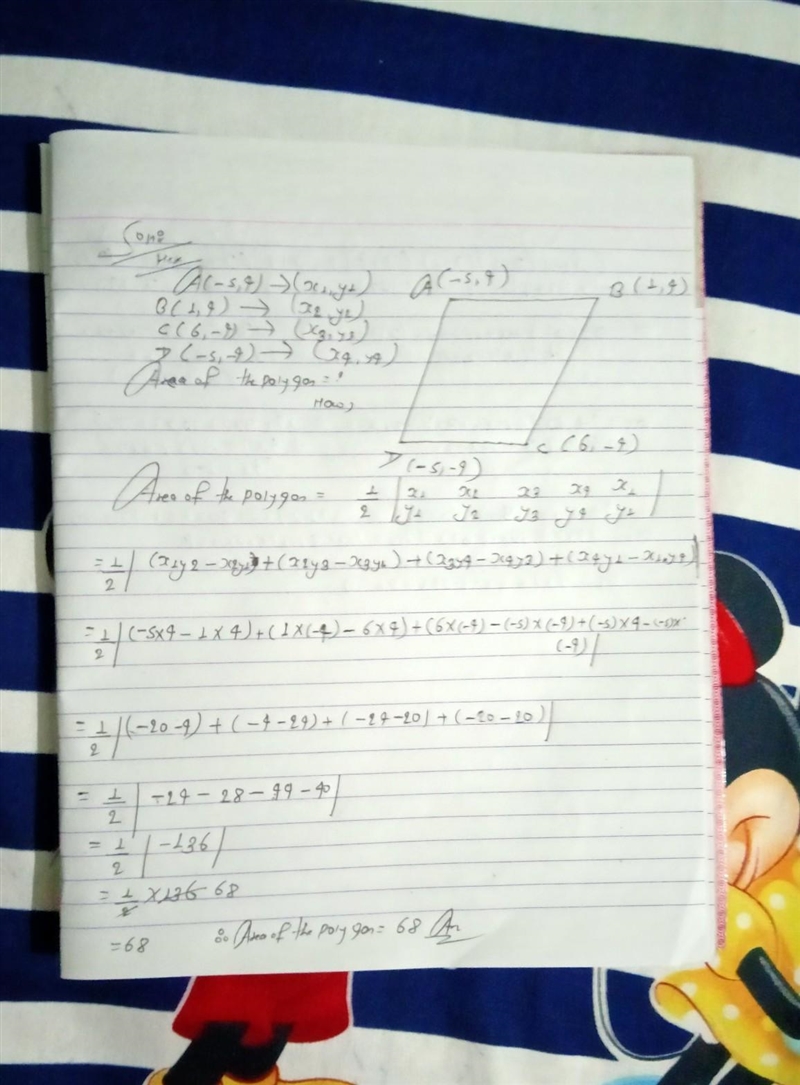 Soln:
A(-5,4) → (x1, y1)
B(1,4) → (x2, y2)
C(6,-4) → (x3, y3)
D(-5,-4) → (x4, y4)
Area of the polygon = ?
Now,
A(-5,4)
B(1,4)
D(-5,-4)
C(6,-4)
Area of the polygon = 1/2 | x1 x2 x3 x4 x1
y1 y2 y3 y4 y1 |
= 1/2 | (x1y2 - x2y1) + (x2y3 - x3y2) + (x3y4 - x4y3) + (x4y1 - x1y4) |
= 1/2 | (-5×4 - 1×4) + (1×(-4) - 6×4) + (6×(-4) - (-5)×(-4) + (-5)×4 - (-5)×
(-4) |
= 1/2 | (-20-4) + (-4-24) + (-24-20) + (-20-20) |
= 1/2 | -24 - 28 - 44 - 40 |
= 1/2 | -136 |
= 1/2 × 136 68
= 68 ∴ Area of the polygon = 68 An